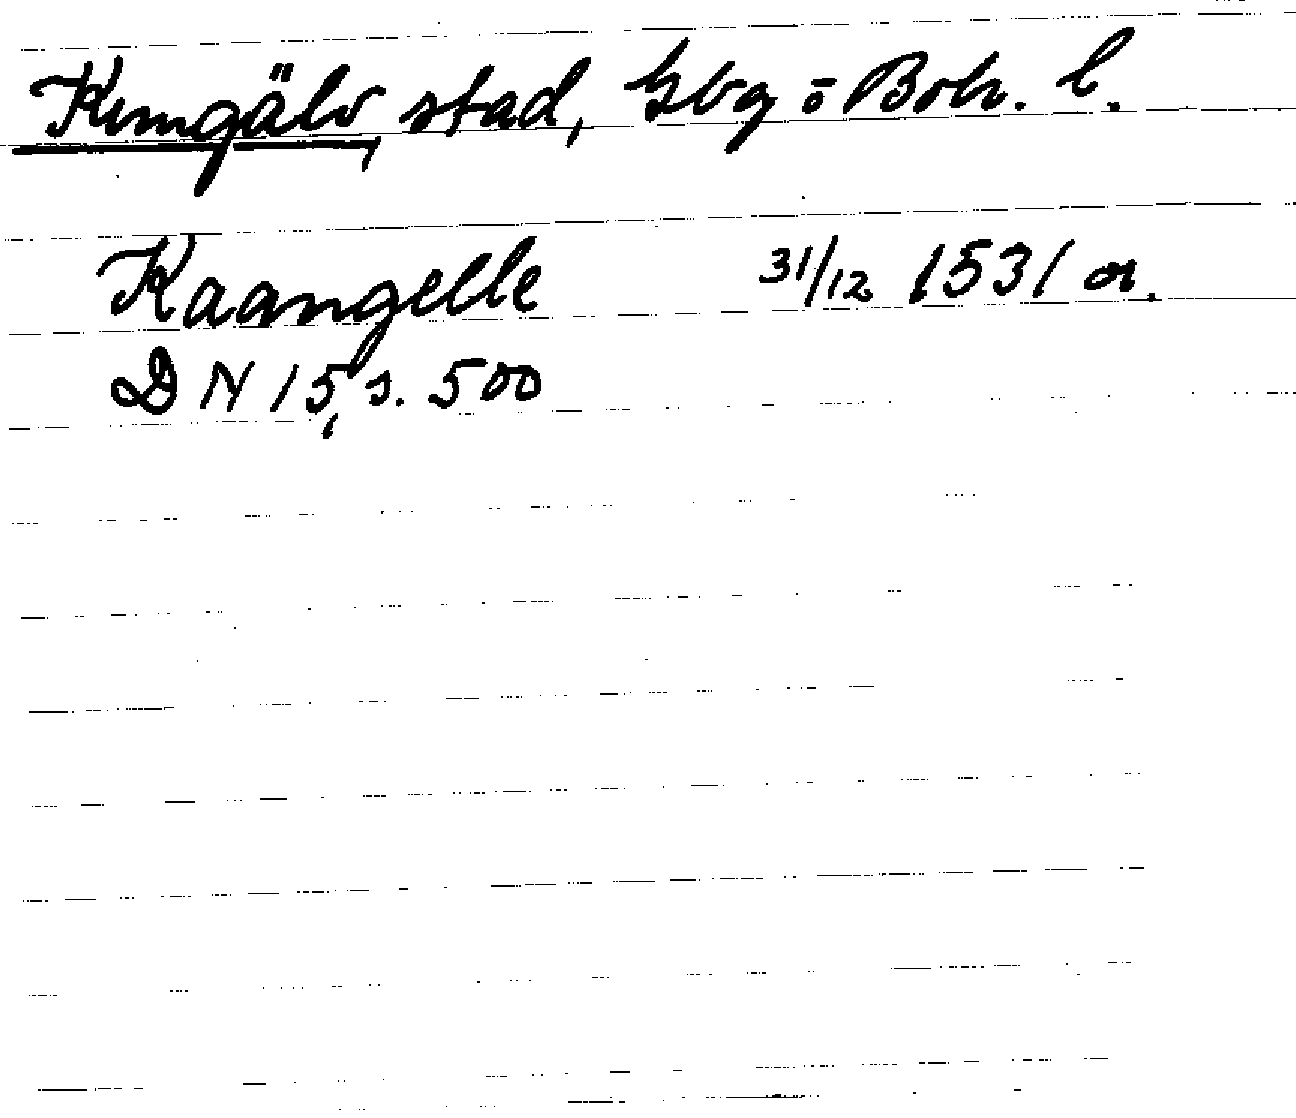 Kungälv, stad, Gbg o Boh. l.
Kaangelle 31/12 1531 or.
DN 15, s. 500